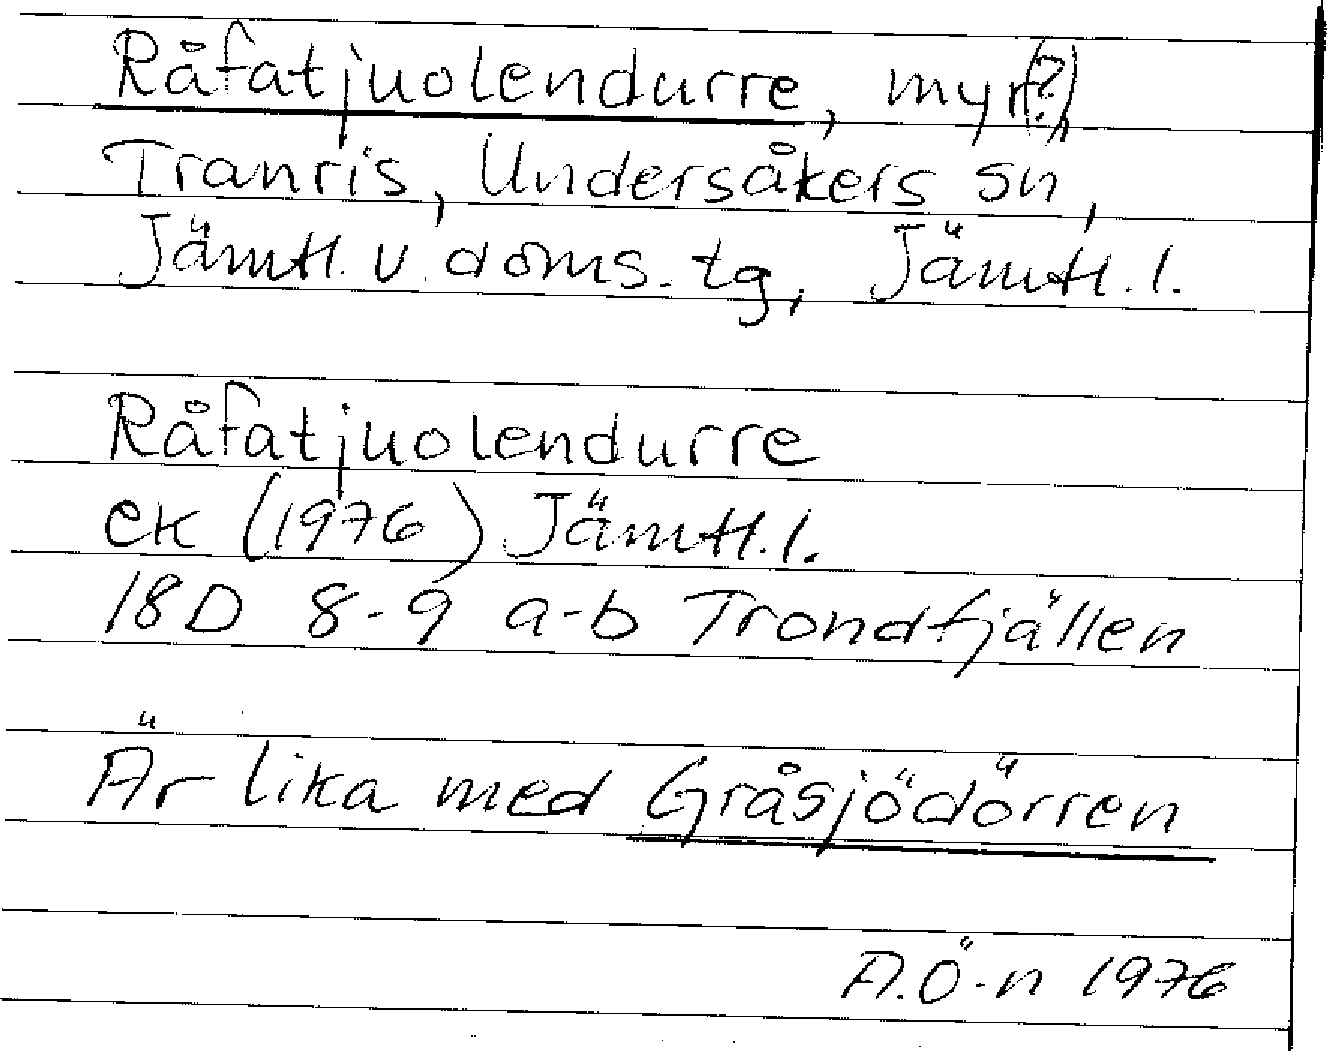 Råfatjuolendurre, myr(?),
Tranris, Undersåkers sn,
Jämtl. v. doms. tg, Jämtl. l.
Råfatjuolendurre
ek (1976) Jämtl. l.
18D 8-9 a-b Trondfjällen
Är lika med Gråsjödörren
A.Ö-n 1976